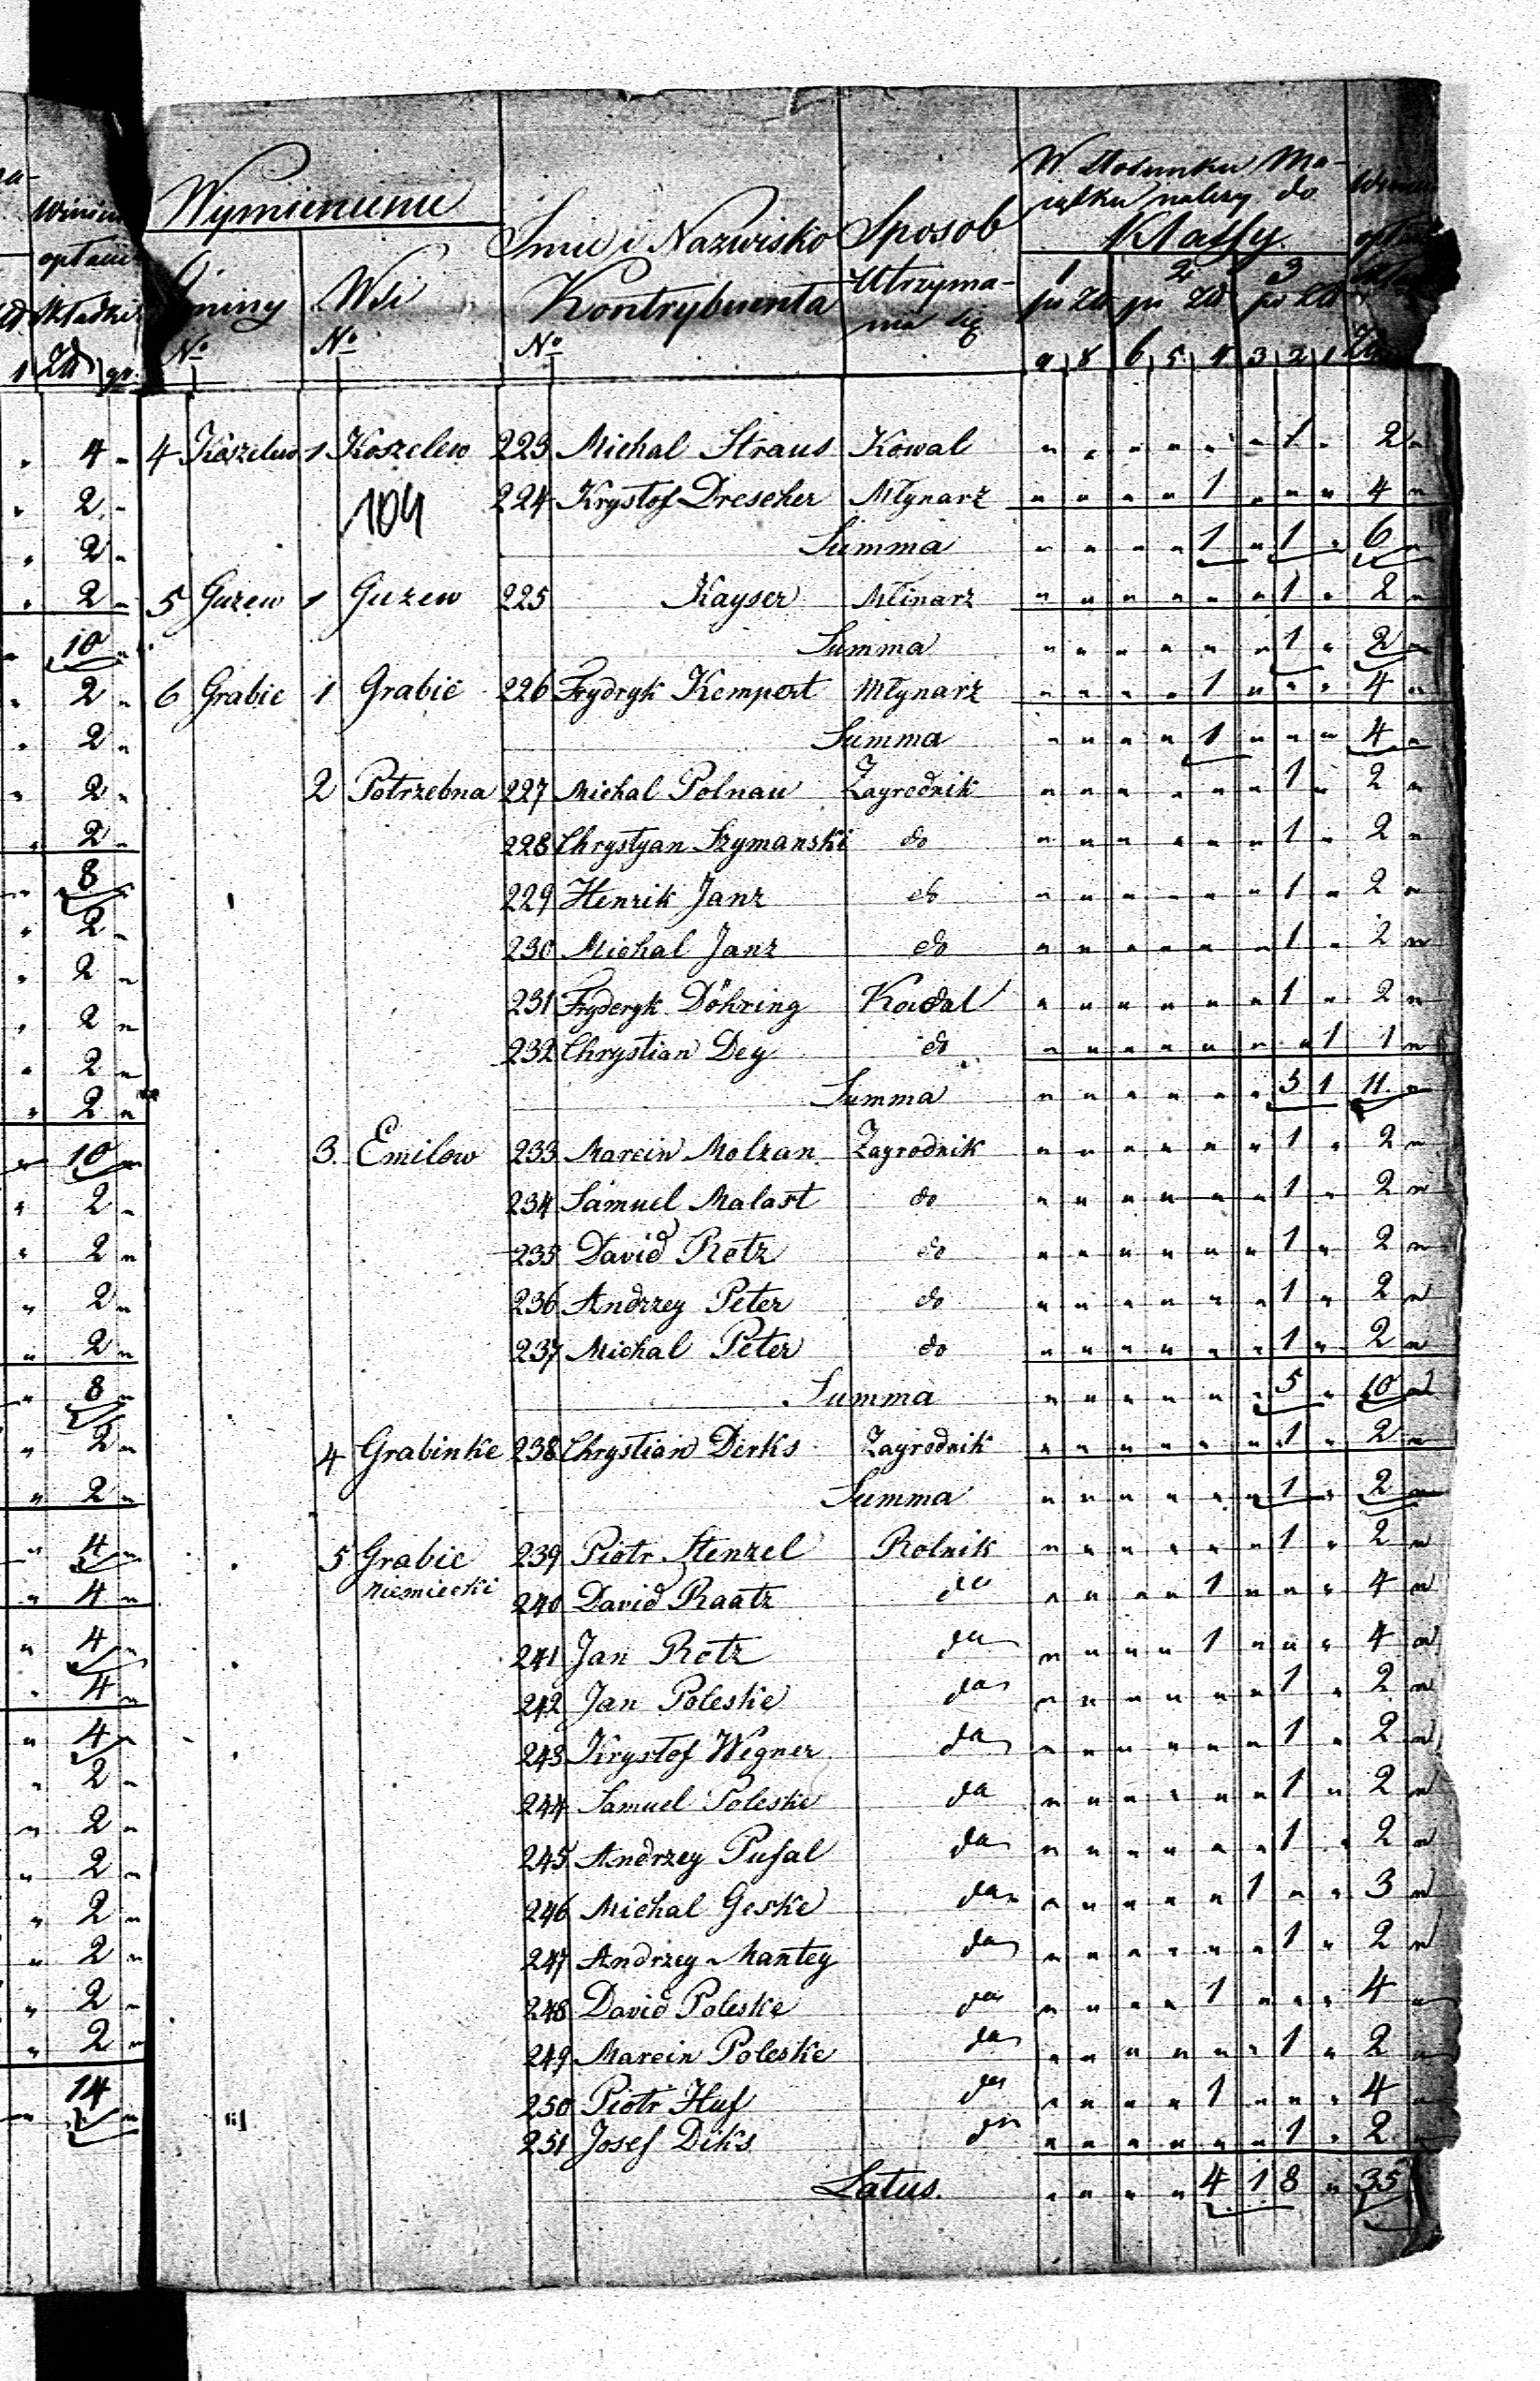 Wymienienie
Gminy Wsi
No No
Imie i Nazwisko
Kontrybuenta
No
Sposob
Utrzyma-
nia się
W Stosunku Ma-
iątku należy do
Klassy
1 2 3
po Zł po Zł po Zł
9 8 6 5 4 3 2 1
4 Koszelew 1 Koszelew 223 Michal Straus Kowal " " " " " " 1 " 2 "
104 224 Krystof Drescher Młynarz " " " " 1 " " " 4 "
Summa " " " " 1 " 1 " 6 "
5 Guzew 1 Guzew 225 Kayser Młinarz " " " " " " 1 " 2 "
Summa " " " " " " 1 " 2 "
6 Grabie 1 Grabie 226 Frydryk Kempert Młynarz " " " " 1 " " " 4 "
Summa " " " " 1 " " " 4 "
2 Potrzebna 227 Michal Polnau Zagrodnik " " " " " " 1 " 2 "
228 Chrystyan Szymanski do " " " " " " 1 " 2 "
229 Henrik Janz do " " " " " " 1 " 2 "
230 Michal Janz do " " " " " " 1 " 2 "
231 Fryderyk Döhring " " " " " " 1 " 2 "
232 Chrystian Dey do " " " " " " " 1 1 "
Summa " " " " " " 5 1 11 "
3. Emilow 233 Marcin Molzan Zagrodnik " " " " " " 1 " 2 "
234 Samuel Malast do " " " " " " 1 " 2 "
235 David Retz do " " " " " " 1 " 2 "
236 Andrzey Peter do " " " " " " 1 " 2 "
237 Michal Peter do " " " " " " 1 " 2 "
Summa " " " " " " 5 " 10 "
4 Grabinke 238 Chrystian Derks Zagrodnik " " " " " " 1 " 2 "
Summa " " " " " " 1 " 2 "
5 Grabie 239 Piotr Stenzel Rolnik " " " " " " 1 " 2 "
niemiecki 240 David Raatz do " " " " 1 " " " 4 "
241 Jan Retz do " " " " 1 " " " 4 "
242 Jan Poleske do " " " " " " 1 " 2 "
243 Krystof Wegner do " " " " " " 1 " 2 "
244 Samuel Poleske do " " " " " " 1 " 2 "
245 Andrzey Pufal do " " " " " " 1 " 2 "
246 Michal Geske do " " " " " 1 " " 3 "
247 Andrzey Mantey do " " " " " " 1 " 2 "
248 David Poleske do " " " " 1 " " " 4 "
249 Marcin Poleske do " " " " " " 1 " 2 "
250 Piotr Huf do " " " " 1 " " " 4 "
251 Josef Diks do " " " " " " 1 " 2 "
Latus. " " " " 4 1 8 " 35